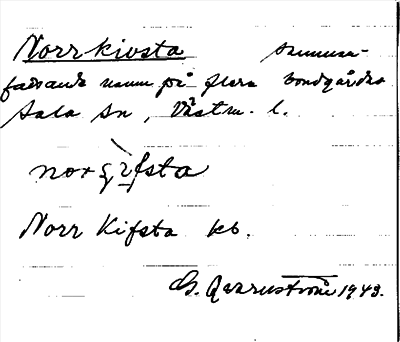 Norrkivsta sammanfattande namn på flera bondgårdar
Sala sn, Västm. l.
norçifsta
Norr Kifsta kb.
G. 1943.